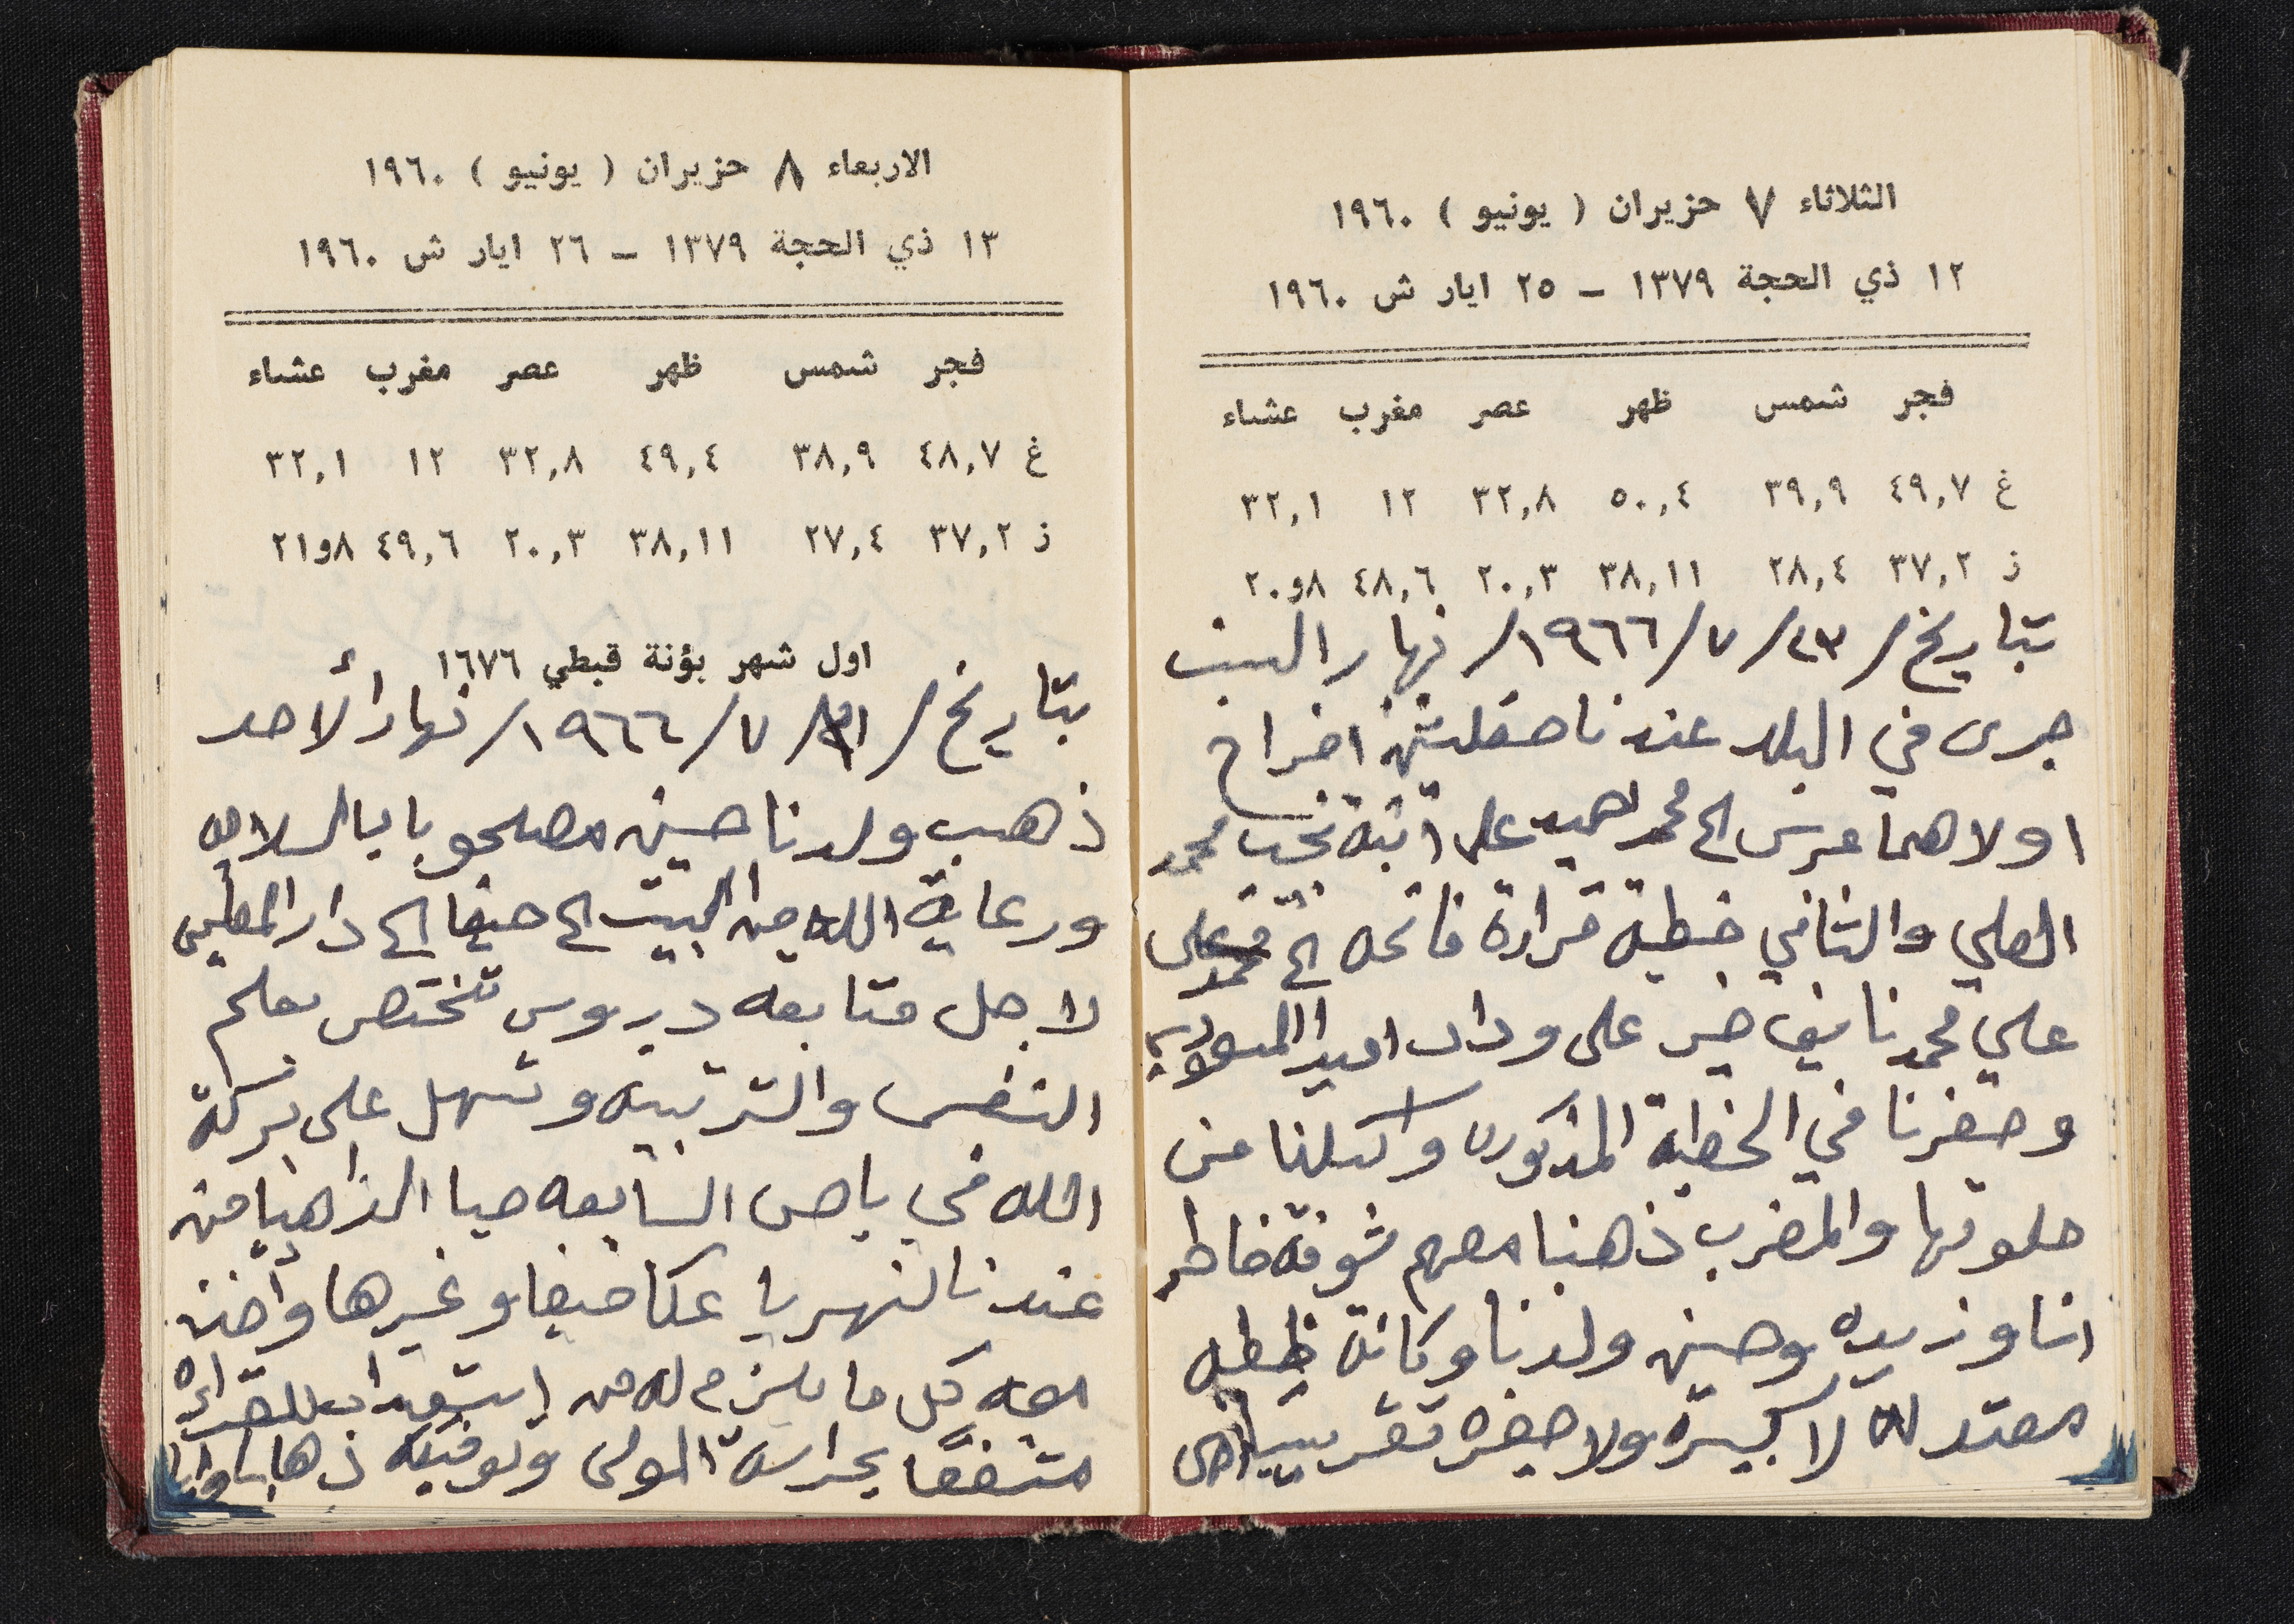 الثلاثاء ٧ حزيران ( يونيو ) ١٩٦٠
١٢ ذي الحجة ١٣٧٩ – ٢٥ ايار ش ١٩٦٠
فجر شمس ظهر عصر مغرب عشاء
غ ٤٩,٧ ٣٩,٩ ٥٠,٤ ٣٢,٨ ١٢ ٣٢,١
ز ٣٧,٢ ٢٨,٤ ٣٨,١١ ٢٠,٣ ٤٨,٦ ٨و٢٠
بتاريخ /٢٣/٧/١٩٦٦/ نهار السبت
جرى في البلد عندنا حفلتين افراح
اولاهما عرس الى محمد حميد على ابنة نجيب محمد
العلي والثاني خطبه قراءة فاتحه الى
علي محمد نايف خير على وداد
وحضرنا في الخطبة المذكوره واكلنا من
حلوتها والمغرب ذهبنا معهم شوفة خاطر
انا وزيده وحسين ولدنا وكانة خطبه
معتدله لا كبيره ولا صغره تقريبا
الاربعاء ٨ حزيران ( يونيو ) ١٩٦٠
١٣ ذي الحجة ١٣٧٩ – ٢٦ ايار ش ١٩٦٠
فجر شمس ظهر عصر مغرب عشاء
غ ٤٨,٧ ٣٨,٩ ٤٩,٤ ٣٢,٨ ١٢ ٣٢,١
ز ٣٧,٢ ٢٧,٤ ٣٨,١١ ٢٠,٣ ٤٩,٦ ٨و٢١
اول شهر بؤنة قبطي ١٦٧٦
بتاريخ / /٧/١٩٦٦/ نهار الأحد
ذهب ولدنا حسين مصحوبا بالسلامه
ورعاية الله من البيت الى حيفا الى دار المعلمين
لاجل متابعه دروس تختص بعلم
النفس والتربيه وتسهل على بركة
الله في باص السابعه صباحا الذاهب من
عندنا لنهريا عكا حيفا وغيرها وأخذ
معه كل ما يلزم له من استعداد للقراءه
متفقًا بحراسة المولى وتوفيقه ذهابا وايابا